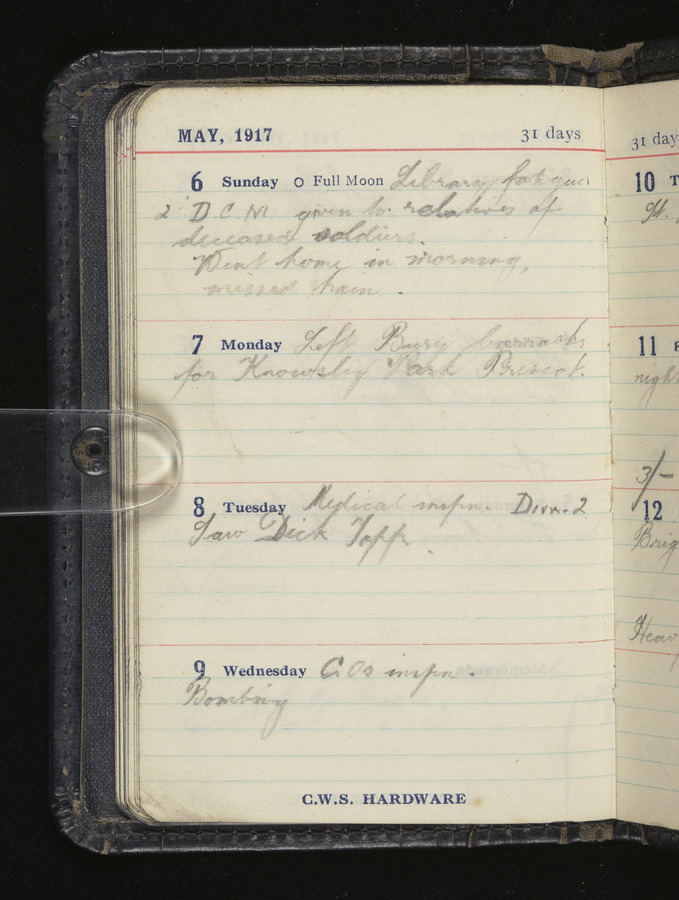 MAY, 1917 31 days
6 Sunday O Full Moon Library fatigue
2 D.C.M given to relatives of
deceased soldiers.
Went home in morning,
missed train.
7 Monday Left Bury barracks
for Knowsley Park Prescot.
8 Tuesday Medical inspn. Divn. 2
Saw Dick Topp.
9 Wednesday C.Os inspn.
Bombing
C.W.S. HARDWARE
31 day
10 T
11 F
nigh
3/-
12
Brig
Heav